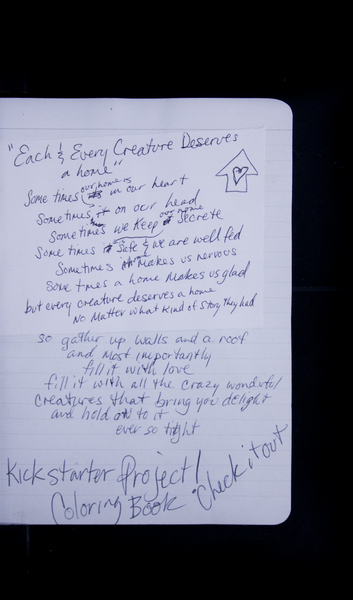 "Each & Every Creature Deserves
a home"
Sometimes our home is in our heart
Sometimes it on our head
Sometimes we keep our home secrete
Sometimes it safe & we are well fed
Sometimes it makes us nervous
Sometimes a home makes us glad
but every creature deserves a home
No Matter what kind of story they had
so gather up walls and a roof
and most importantly
fill it with love
fill it with all the crazy wonderful
creatures that bring you delight
and hold on to it
ever so tight
Kickstarter Project!
Coloring Book Check it out